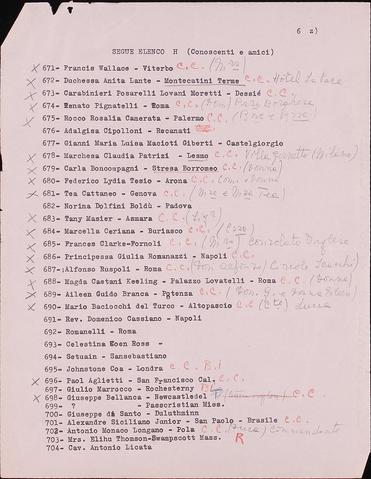 6 z)
SEGUE ELENCO H (Conoscenti e amici)
X 671- Francis Wallace - Viterbo C.C.
X 672- Duchessa Anita Lante - Montecatini Terme C.C. Hotel La Pace
X 673- Carabinieri Posarelli Lovani Moretti - Dessié C.C.
X 674- Renato Pignatelli - Roma C.C. (Don) Borghese
X 675- Rocco Rosalia Camerata - Palermo C.C.
676- Adalgisa Cipolloni - Recanati
677- Gianni Maria Luisa Macioti Giberti - Castelgiorgio
X 678- Marchesa Claudia Patrizi - Lesmo C.C. (Milano)
X 679- Carla Boncompagni - Stresa Borromeo C.C. (Donna)
X 680- Federico Lydia Tesio - Arona C.C.
X 681- Tea Cattaneo - Genova C.C.
682- Norina Dolfini Boldù - Padova
X 683- Tany Masier - Asmara C.C.
X 684- Marcella Ceriana - Buriasco C.C.
X 685- Frances Clarke-Fornoli C.C. Consolato Inglese
X 686- Principessa Giulia Romanazzi - Napoli C.C.
X 687- Alfonso Ruspoli - Roma C.C. (Don Alfonso) Circolo Scacchi
X 688- Magda Caetani Keeling - Palazzo Lovatelli - Roma C.C. (Donna)
X 689- Aileen Guido Branca - Potenza C.C.
X 690- Mario Baciocchi del Turco - Altopascio C.C. (Cte) Lucca
691- Rev. Domenico Cassiano - Napoli
692- Romanelli - Roma
693- Celestina Koen Ross -
694- Setuain - Sansebastiano
695- Johnstone Coa - Londra C.C.
X 696- Paol Aglietti - San Francisco Cal. C.C.
697- Giulio Marrocco - Rochesterny
X 698- Giuseppe Bellanca - Newcastledel C.C.
699- ? - Passcristian Miss.
700- Giuseppe di Santo - Duluthminn
701- Alexandre Siciliano Junior - San Paolo - Brasile C.C.
702- Antonio Monaco Longano - Pola C.C. (Duca) Comandante
703- Mrs. Elihu Thomson-Swampscott Mass. R
704- Cav. Antonio Licata